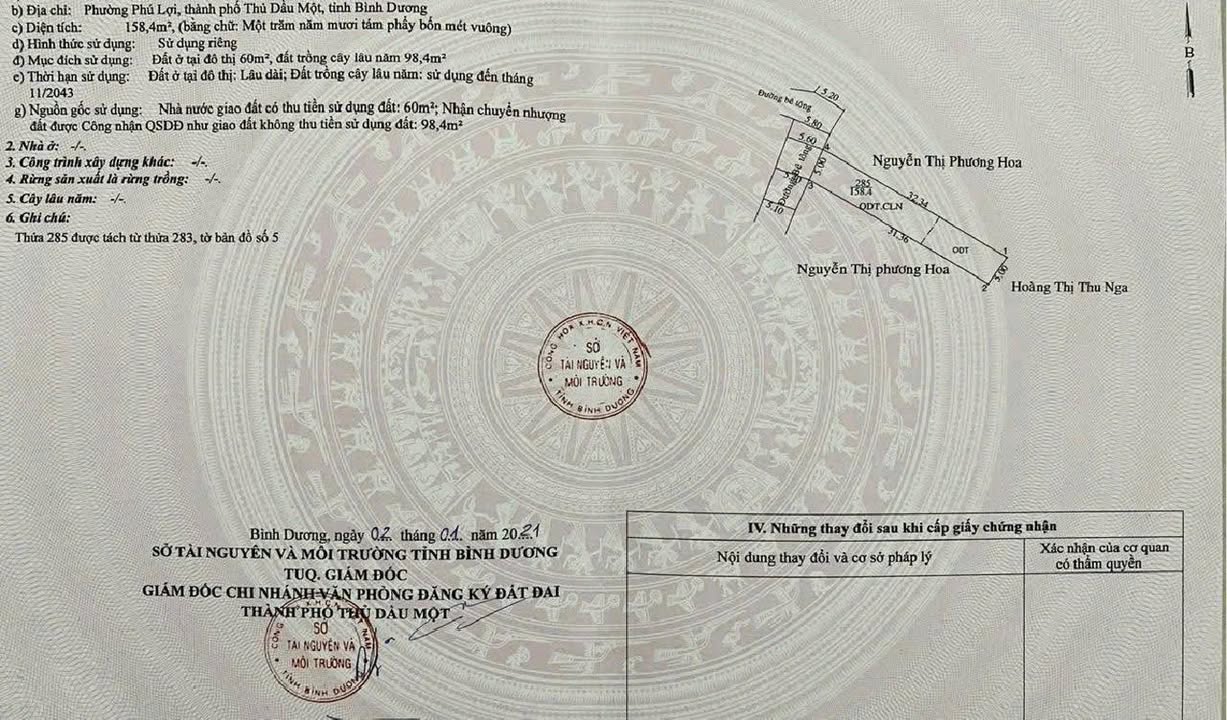 b) Địa chỉ: Phường Phú Lợi, thành phố Thủ Dầu Một, tỉnh Bình Dương
c) Diện tích: 158,4m², (bằng chữ: Một trăm năm mươi tám phẩy bốn mét vuông)
d) Hình thức sử dụng: Sử dụng riêng
đ) Mục đích sử dụng: Đất ở tại đô thị 60m², đất trồng cây lâu năm 98,4m²
e) Thời hạn sử dụng: Đất ở tại đô thị: Lâu dài; Đất trồng cây lâu năm: sử dụng đến tháng
11/2043
g) Nguồn gốc sử dụng: Nhà nước giao đất có thu tiền sử dụng đất: 60m²; Nhận chuyển nhượng
đất được Công nhận QSDĐ như giao đất không thu tiền sử dụng đất: 98,4m²
2. Nhà ở: -/-.
3. Công trình xây dựng khác: -/-.
4. Rừng sản xuất là rừng trồng: -/-.
5. Cây lâu năm: -/-.
6. Ghi chú:
Thửa 285 được tách từ thửa 283, tờ bản đồ số 5
B
Đường bê tông
5.20
5.80
5.60
4
Đường Bê tông
5.00
3
5.10
Nguyễn Thị Phương Hoa
285
158.4
ODT.CLN
32.34
31.36
ODT
1
5.00
2
Nguyễn Thị phương Hoa
Hoàng Thị Thu Nga
CỘNG HÒA X.H.C.N VIỆT NAM
SỞ
TÀI NGUYÊN VÀ
MÔI TRƯỜNG
TỈNH BÌNH DƯƠNG
Bình Dương, ngày 02 tháng 01. năm 2021
SỞ TÀI NGUYÊN VÀ MÔI TRƯỜNG TỈNH BÌNH DƯƠNG
TUQ. GIÁM ĐỐC
GIÁM ĐỐC CHI NHÁNH VĂN PHÒNG ĐĂNG KÝ ĐẤT ĐAI
THÀNH PHỐ THỦ DẦU MỘT
SỞ
TÀI NGUYÊN VÀ
MÔI TRƯỜNG
TỈNH BÌNH DƯƠNG
IV. Những thay đổi sau khi cấp giấy chứng nhận
Nội dung thay đổi và cơ sở pháp lý
Xác nhận của cơ quan
có thẩm quyền